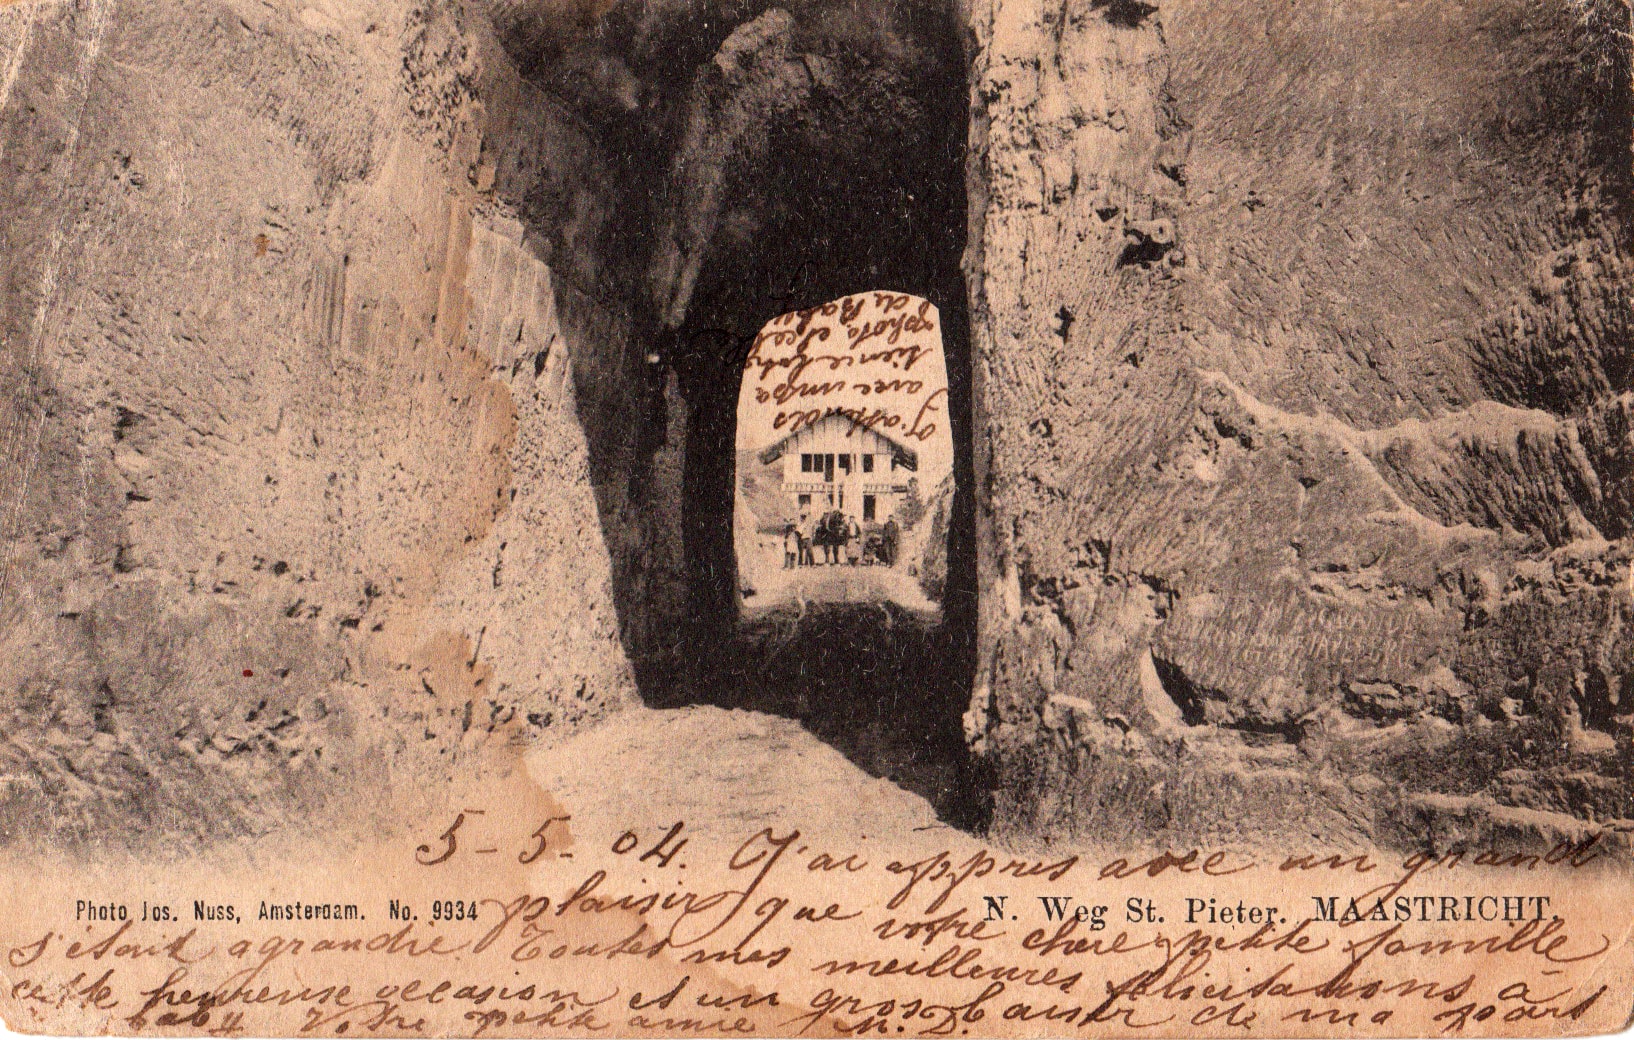 J'attends
avec impa
tience votre
photo et celle
de Baby
5-5-04. J'ai appris avec un grand
plaisir que votre chère petite famille
Photo Jos. Nuss, Amsterdam. No. 9934
N. Weg St. Pieter. MAASTRICHT.
s'était agrandie. Toutes mes meilleures félicitations à
cette heureuse occasion et un gros baiser de ma part
à Baby. Votre petite amie N. D.